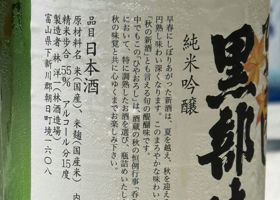 黒部
純米吟醸
早春にしぼりあがった新酒は、夏を越え、秋を迎え
円熟し味わい深くなります。このまろやかな味わい
「秋の新酒」とも言える旬の醍醐味です。
中でもこの「ひやおろし」は、酒蔵の秋の恒例行事「呑
において、特に調熟したお酒を選び、瓶詰めいたし
秋の味覚と共に心ゆくまでお楽しみ下さい。
品目 日本酒
原材料名 米(国産)、米麹(国産米) 内
精米歩合 55% アルコール分 15度
製造者 林酒造場
富山県下新川郡朝日町境一六〇八